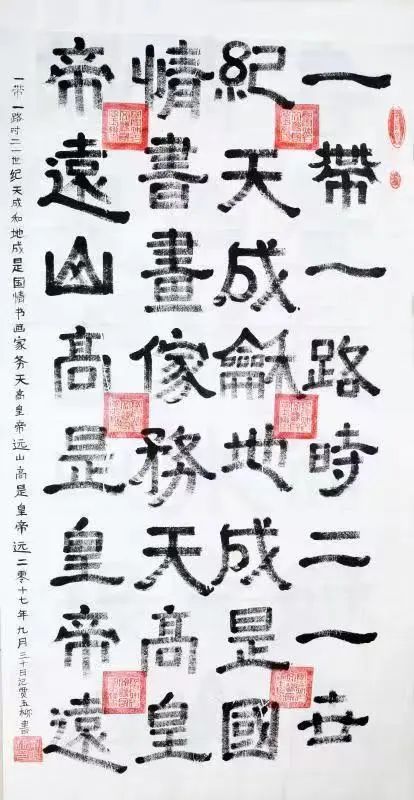 一帶一路時二一世
紀天成龢地成是國
情書畫傢務天高皇
帝遠山高是皇帝遠
一带一路时二一世纪天成和地成是国情书画家务天高皇帝远山高是皇帝远二零十七年九月三十日记贾五柳書